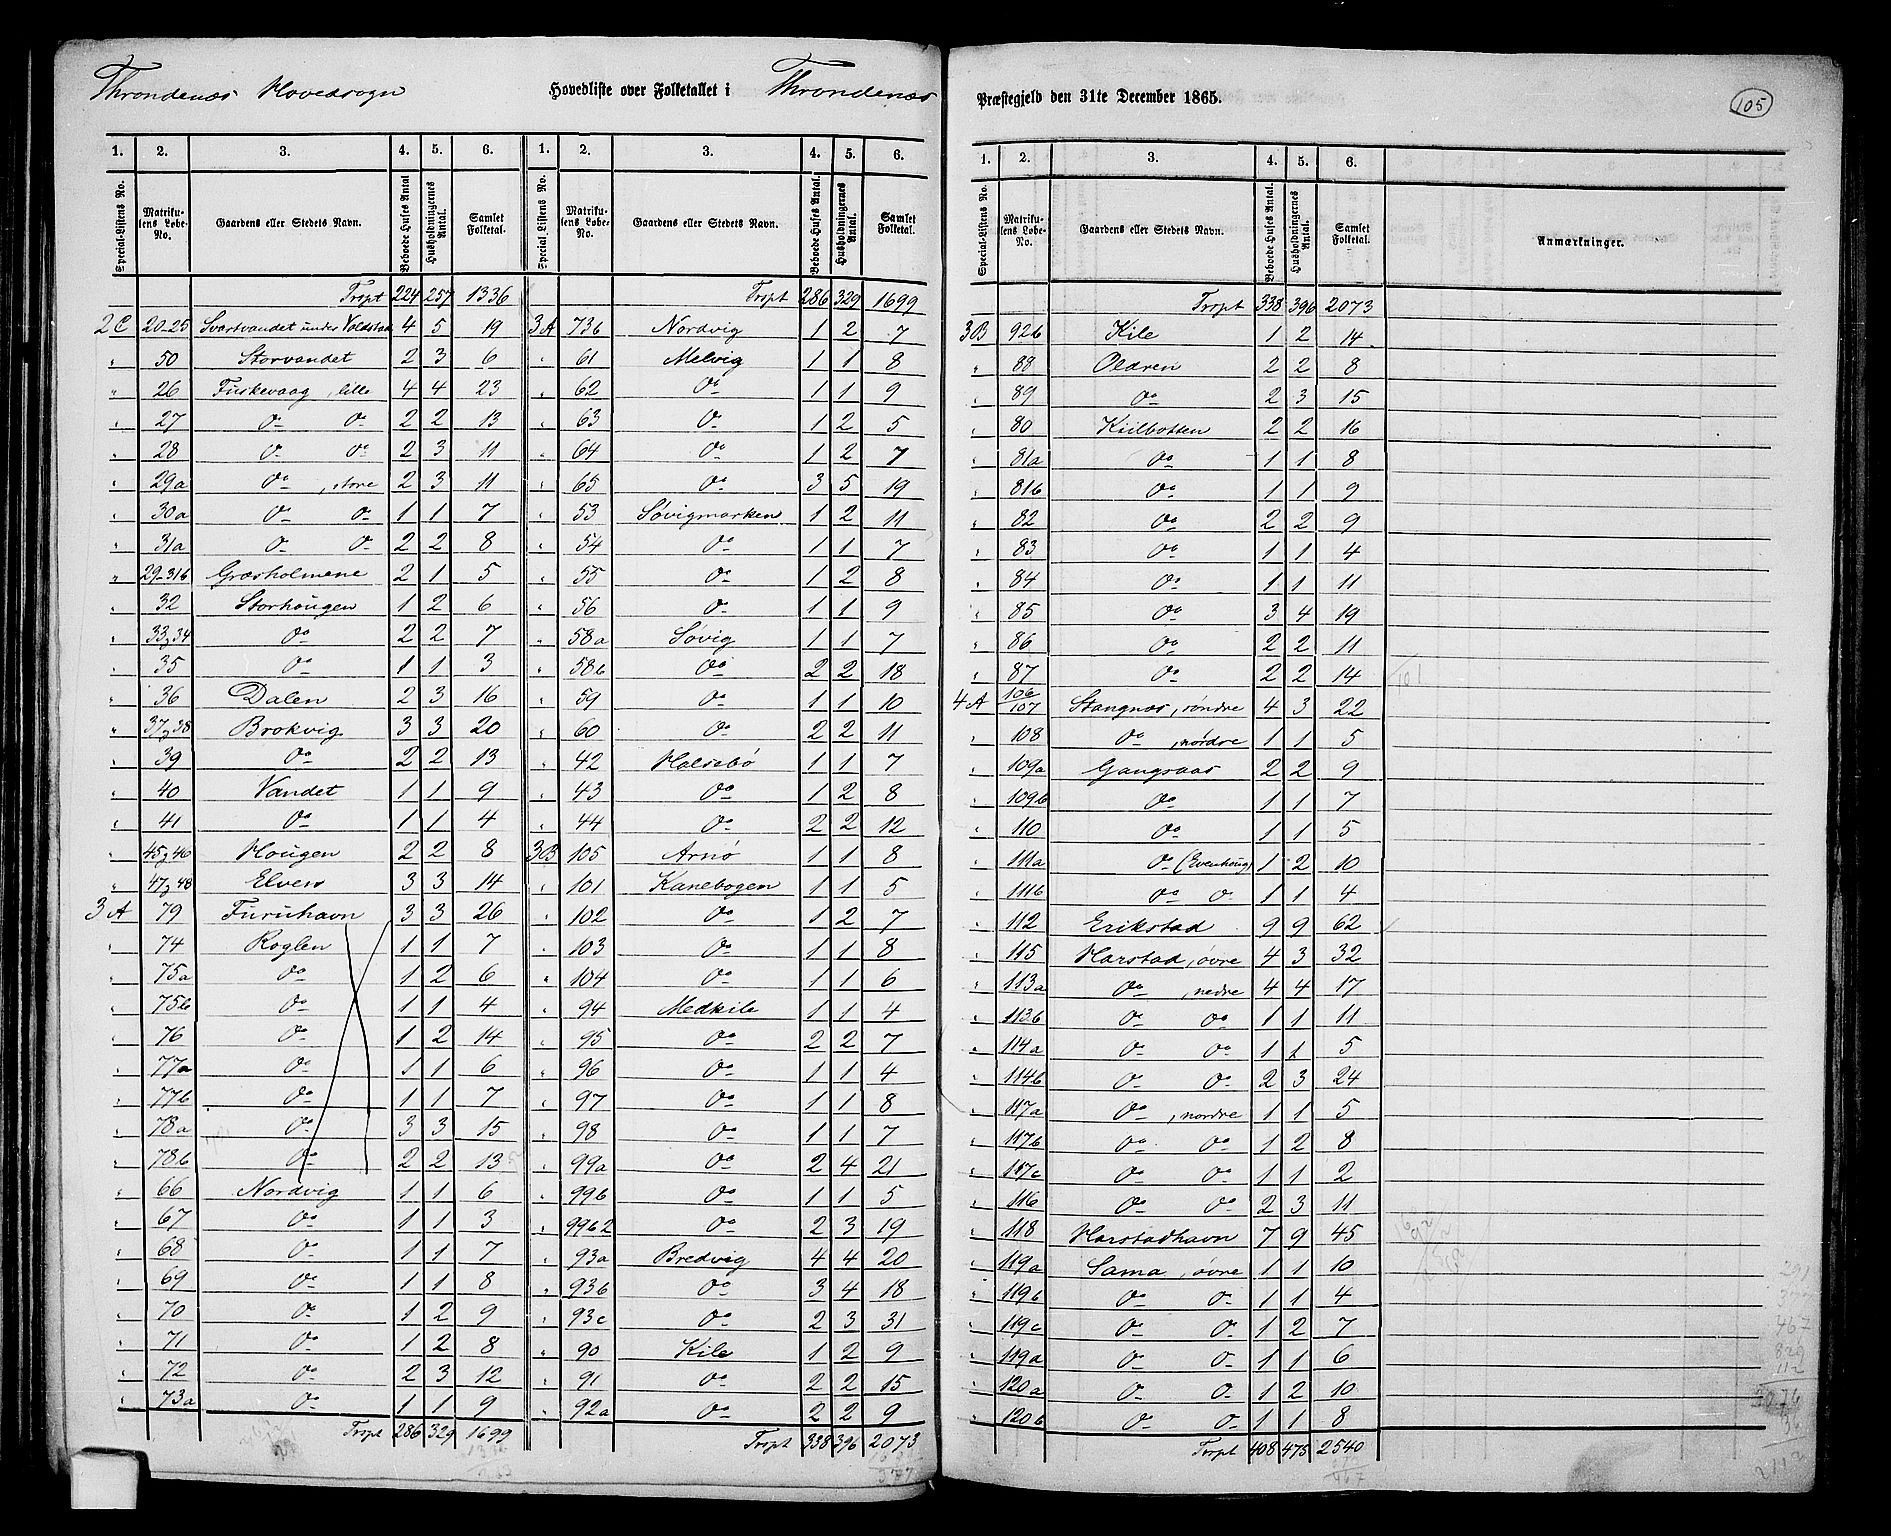 Throndenæs Hovedsogn Hovedliste over Folketallet i Throndenæs Præstegjeld den 31te December 1865. 105
1. 2. 3. 4. 5. 6.
Special-Listens No. Matrikulens Løbe-No. Gaardens eller Stedets Navn. Beboede Huses Antal Husholdningernes Antal. Samlet Folketal.
Trspt 224 257 1336
2C 20-25 Svartvandet under Voldstad 4 5 19
" 50 Storvandet 2 3 6
" 26 Fuskevaag, lille 4 4 23
" 27 Do Do 2 2 13
" 28 Do Do 2 3 11
" 29a Do, store 2 3 11
" 30a Do Do 1 1 7
" 31a Do Do 2 2 8
" 29-31b Græsholmene 2 1 5
" 32 Storhougen 1 2 6
" 33, 34 Do 2 2 7
" 35 Do 1 1 3
" 36 Dalen 2 3 16
" 37, 38 Brokvig 3 3 20
" 39 Do 2 2 13
" 40 Vandet 1 1 9
" 41 Do 1 1 4
" 45, 46 Hougen 2 2 8
" 47, 48 Elven 3 3 14
3A 79 Furuhavn 3 3 26
" 74 Roglen 1 1 7
" 75a Do 1 2 6
" 75b Do 1 1 4
" 76 Do 1 2 14
" 77a Do 1 1 6
" 77b Do 1 1 7
" 78a Do 3 3 15
" 78b Do 2 2 13
" 66 Nordvig 1 1 6
" 67 Do 1 1 3
" 68 Do 1 1 7
" 69 Do 1 1 8
" 70 Do 1 2 9
" 71 Do 1 2 8
" 72 Do 2 3 12
" 73a Do 1 1 9
Trspt 286 329 1699
1. 2. 3. 4. 5. 6.
Special Listens No. Matrikulens Løbe-No. Gaardens eller Stedets Navn. Beboede Huses Antal. Husholdningernes Antal. Samlet Folketal.
Trspt 286 329 1699
3A 73b Nordvig 1 2 7
" 61 Melvig 1 1 8
" 62 Do 1 1 9
" 63 Do 1 2 5
" 64 Do 1 2 7
" 65 Do 3 5 19
" 53 Søvigmarken 1 2 11
" 54 Do 1 1 7
" 55 Do 1 2 8
" 56 Do 1 1 9
" 58a Søvig 1 1 7
" 58b Do 2 2 18
" 59 Do 1 1 10
" 60 Do 2 2 11
" 42 Halsebø 1 1 7
" 43 Do 1 2 8
" 44 Do 2 2 12
3B 105 Arnø 1 1 8
" 101 Kanebogen 1 1 5
" 102 Do 1 2 7
" 103 Do 1 1 8
" 104 Do 1 1 6
" 94 Medkile 1 1 4
" 95 Do 2 2 7
" 96 Do 1 1 4
" 97 Do 1 1 8
" 98 Do 1 1 7
" 99a Do 2 4 21
" 99b Do 1 1 5
" 99b2 Do 2 3 19
" 93a Bredvig 4 4 20
" 93b Do 3 4 18
" 93c Do 2 3 31
" 90 Kile 1 2 9
" 91 Do 2 2 15
" 92a Do 2 2 9
Trspt 338 396 2073
1. 2. 3. 4. 5. 6.
Special-Listens No. Matrikulens Løbe-No. Gaardens eller Stedets Navn. Beboede Huses Antal. Husholdningernes Antal. Samlet Folketal. Anmærkninger.
Trspt 338 396 2073
3B 92b Kile 1 2 14
" 88 Oldren 2 2 8
" 89 Do 2 3 15
" 80 Kiilbotten 2 2 16
" 81a Do 1 1 8
" 81b Do 1 1 9
" 82 Do 2 2 9
" 83 Do 1 1 4
" 84 Do 1 1 11
" 85 Do 3 4 19
" 86 Do 2 2 11
" 87 Do 2 2 14
4A 106/107 Stangnæs, søndre 4 3 22
" 108 Do, nørdre 1 1 5
" 109a Gangsaas 2 2 9
" 109b Do 1 1 7
" 110 Do 1 1 5
" 111a Do (Evenhoug) 1 2 10
" 111b Do Do 1 1 4
" 112 Erikstad 9 9 62
" 115 Harstad, øvre 4 3 32
" 113a Do, nedre 4 4 17
" 113b Do Do 1 1 11
" 114a Do Do 1 1 5
" 114b Do Do 2 3 24
" 117a Do, nordre 1 1 5
" 117b Do Do 1 2 8
" 117c Do Do 1 1 2
" 116 Do Do 2 3 11
" 118 Harstadhavn 7 9 45
" 119a Sama, øvre 1 1 10
" 119b Do Do 1 1 4
" 119c Do Do 1 2 7
" 119d Do Do 1 1 6
" 120a Do Do 1 2 10
" 120b Do Do 1 1 8
Trspt 408 475 2540
467
829
112
2112